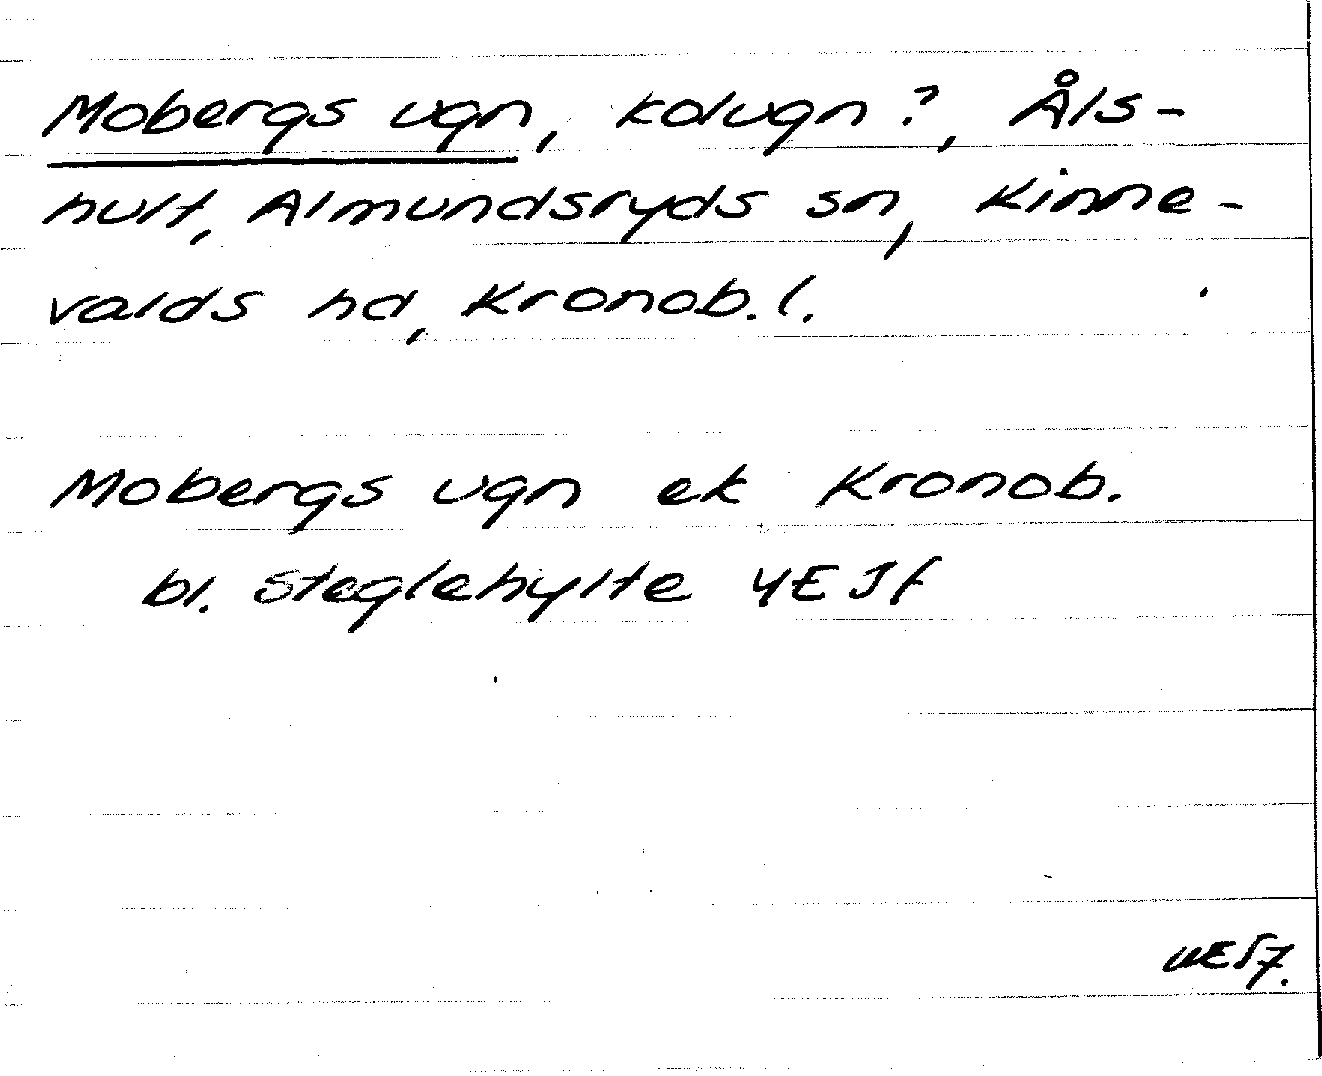 Mobergs ugn, kolugn?, Åls-
hult, Almundsryds sn, Kinne-
valds hd, Kronob. l.
Mobergs ugn ek Kronob.
bl. Steglehylte 4E Jf